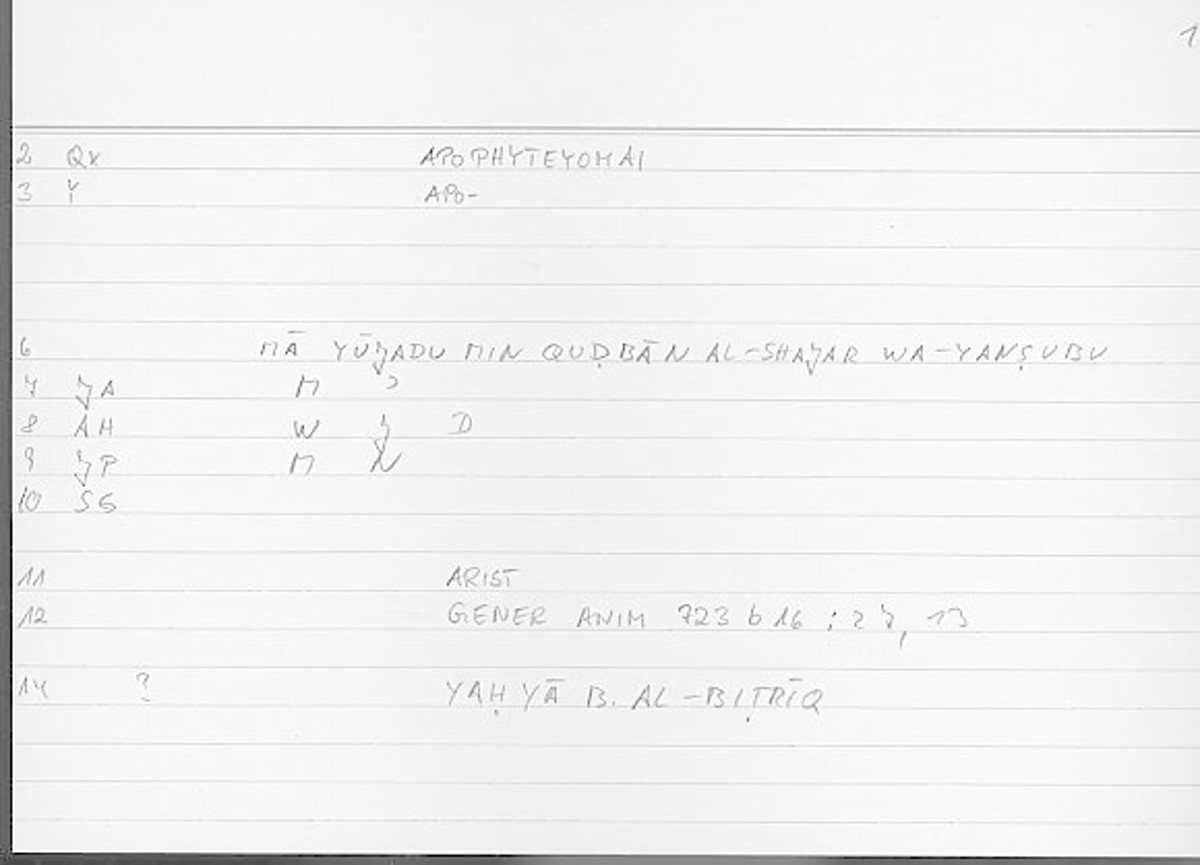 1
2 QX APOPHYTEYOMAI
3 Y APO-
6 MĀ YŪJADU MIN QUḌBĀN AL-SHAJAR WA-YANṢUBU
7 JA M
8 AH W J D
9 JP M
10 SG
11 ARIST
12 GENER ANIM 723 b 16 ; 27, 13
14 ? YAḤYĀ B. AL-BIṬRĪQ